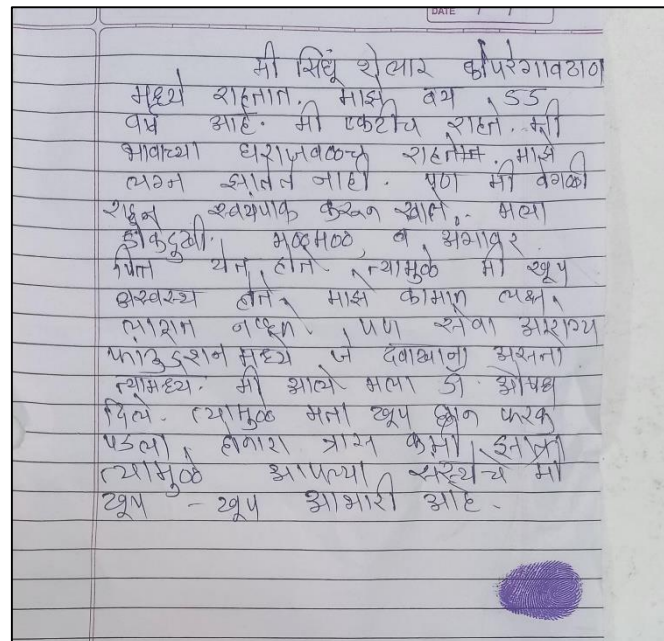 DATE
मी सिंधू शेलार कोपरगावठाण
मध्ये राहतात. माझे वय 55
वर्ष आहे. मी एकटीच राहते. मी
भावाच्या घराजवळच राहतोन. माझे
लग्न झालेले नाही. पण मी वेगळी
राहून स्वयंपाक करून खाते. मला
डोकेदुखी. मळमळ, व अंगावर
पित्त येत होते, त्यामुळे मी खूप
अस्वस्थ होते. माझे कामान लक्ष
लागत नव्हत, पण सेवा आरोग्य
फांउडेशन मध्ये जे दवाखाना असतो
त्यामध्ये. मी आले मला डॉ. औषध
दिले. त्यामुळे मला खूप छान फरक
पडला, होनारा त्रास कमी झाला
त्यामुळे आपल्या संस्थेचे मी
खूप - खूप आभारी आहे.